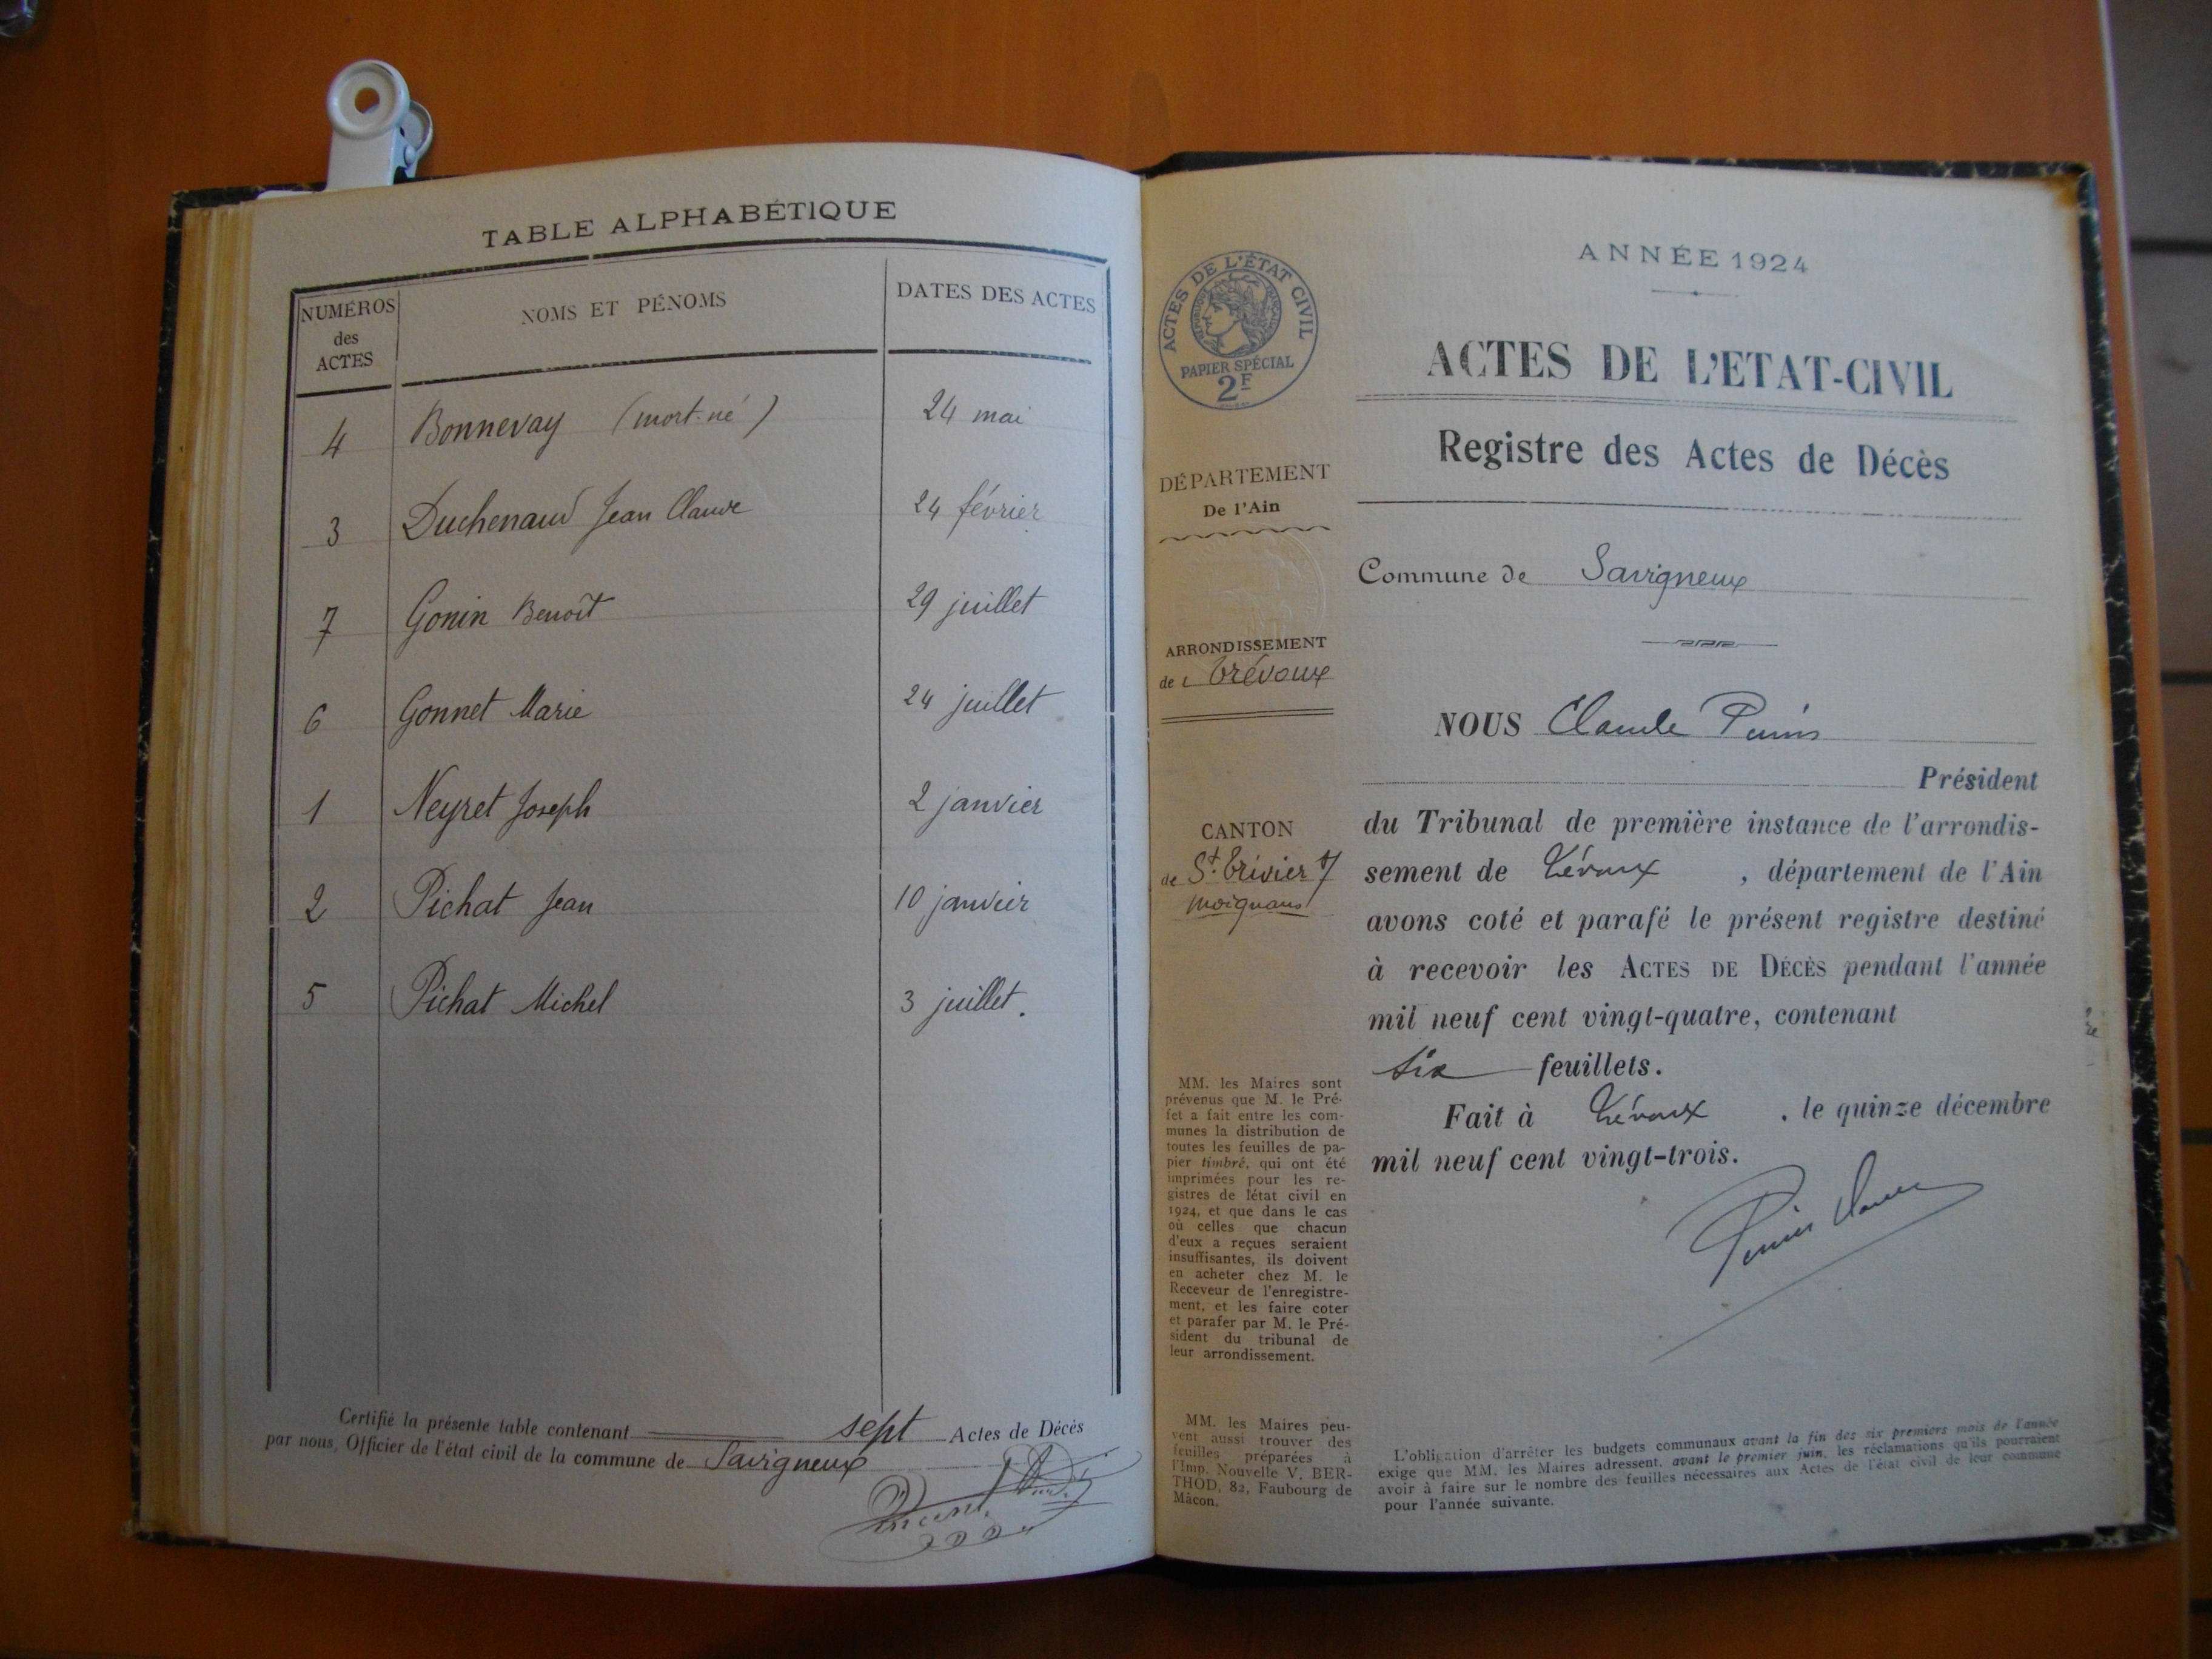 TABLE ALPHABÉTIQUE
NUMÉROS des ACTES
NOMS ET PÉNOMS
DATES DES ACTES
4 Bonnevay (mort-né) 24 mai
3 Duchenaud Jean Claude 24 février
7 Gonin Benoît 29 juillet
6 Gonnet Marie 24 juillet
1 Neyret Joseph 2 janvier
2 Pichat Jean 10 janvier
5 Pichat Michel 3 juillet.
Certifié la présente table contenant sept Actes de Décès
par nous, Officier de l'état civil de la commune de Savigneux
ACTES DE L'ÉTAT CIVIL
RÉPUBLIQUE FRANÇAISE
PAPIER SPÉCIAL
2F
DÉPARTEMENT
De l'Ain
ARRONDISSEMENT
de Trévoux
CANTON
de St Trivier s/
moignans
MM. les Maires sont
prévenus que M. le Pré-
fet a fait entre les com-
munes la distribution de
toutes les feuilles de pa-
pier timbré, qui ont été
imprimées pour les re-
gistres de l'état civil en
1924, et que dans le cas
où celles que chacun
d'eux a reçues seraient
insuffisantes, ils doivent
en acheter chez M. le
Receveur de l'enregistre-
ment, et les faire coter
et parafer par M. le Pré-
sident du tribunal de
leur arrondissement.
MM. les Maires peu-
vent aussi trouver des
feuilles préparées à
l'Imp. Nouvelle V. BER-
THOD, 82, Faubourg de
Mâcon.
ANNÉE 1924
ACTES DE L'ETAT-CIVIL
Registre des Actes de Décès
Commune de Savigneux
NOUS Claude
Président
du Tribunal de première instance de l'arrondis-
sement de Trévoux, département de l'Ain
avons coté et parafé le présent registre destiné
à recevoir les ACTES DE DÉCÈS pendant l'année
mil neuf cent vingt-quatre, contenant
six feuillets.
Fait à Trévoux, le quinze décembre
mil neuf cent vingt-trois.
L'obligation d'arrêter les budgets communaux avant la fin des six premiers mois de l'année
exige que MM. les Maires adressent, avant le premier juin, les réclamations qu'ils pourraient
avoir à faire sur le nombre des feuilles nécessaires aux Actes de l'état civil de leur commune
pour l'année suivante.